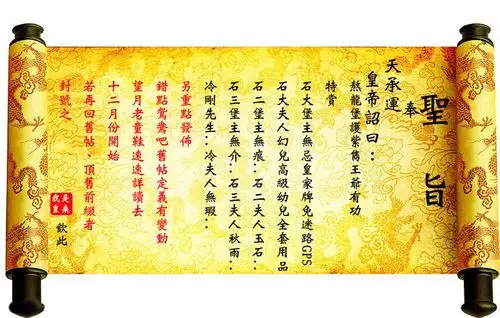 聖旨
奉
天承運
皇帝詔曰：
熬龍堡護紫雋王爺有功
特賞
石大堡主無忌皇家牌免迷路GPS
石大夫人幻兒高級幼兒全套用品
石二堡主無痕：石二夫人玉石：
石三堡主無介：石三夫人秋雨：
冷剛先生：冷夫人無瑕：
另重點發佈
錯點鴛鴦吧舊帖定義有變動
望月老童鞋速速詳讀去
十二月份開始
若再回舊帖、頂舊前綴者
封號之
欽此
我是
皇桑